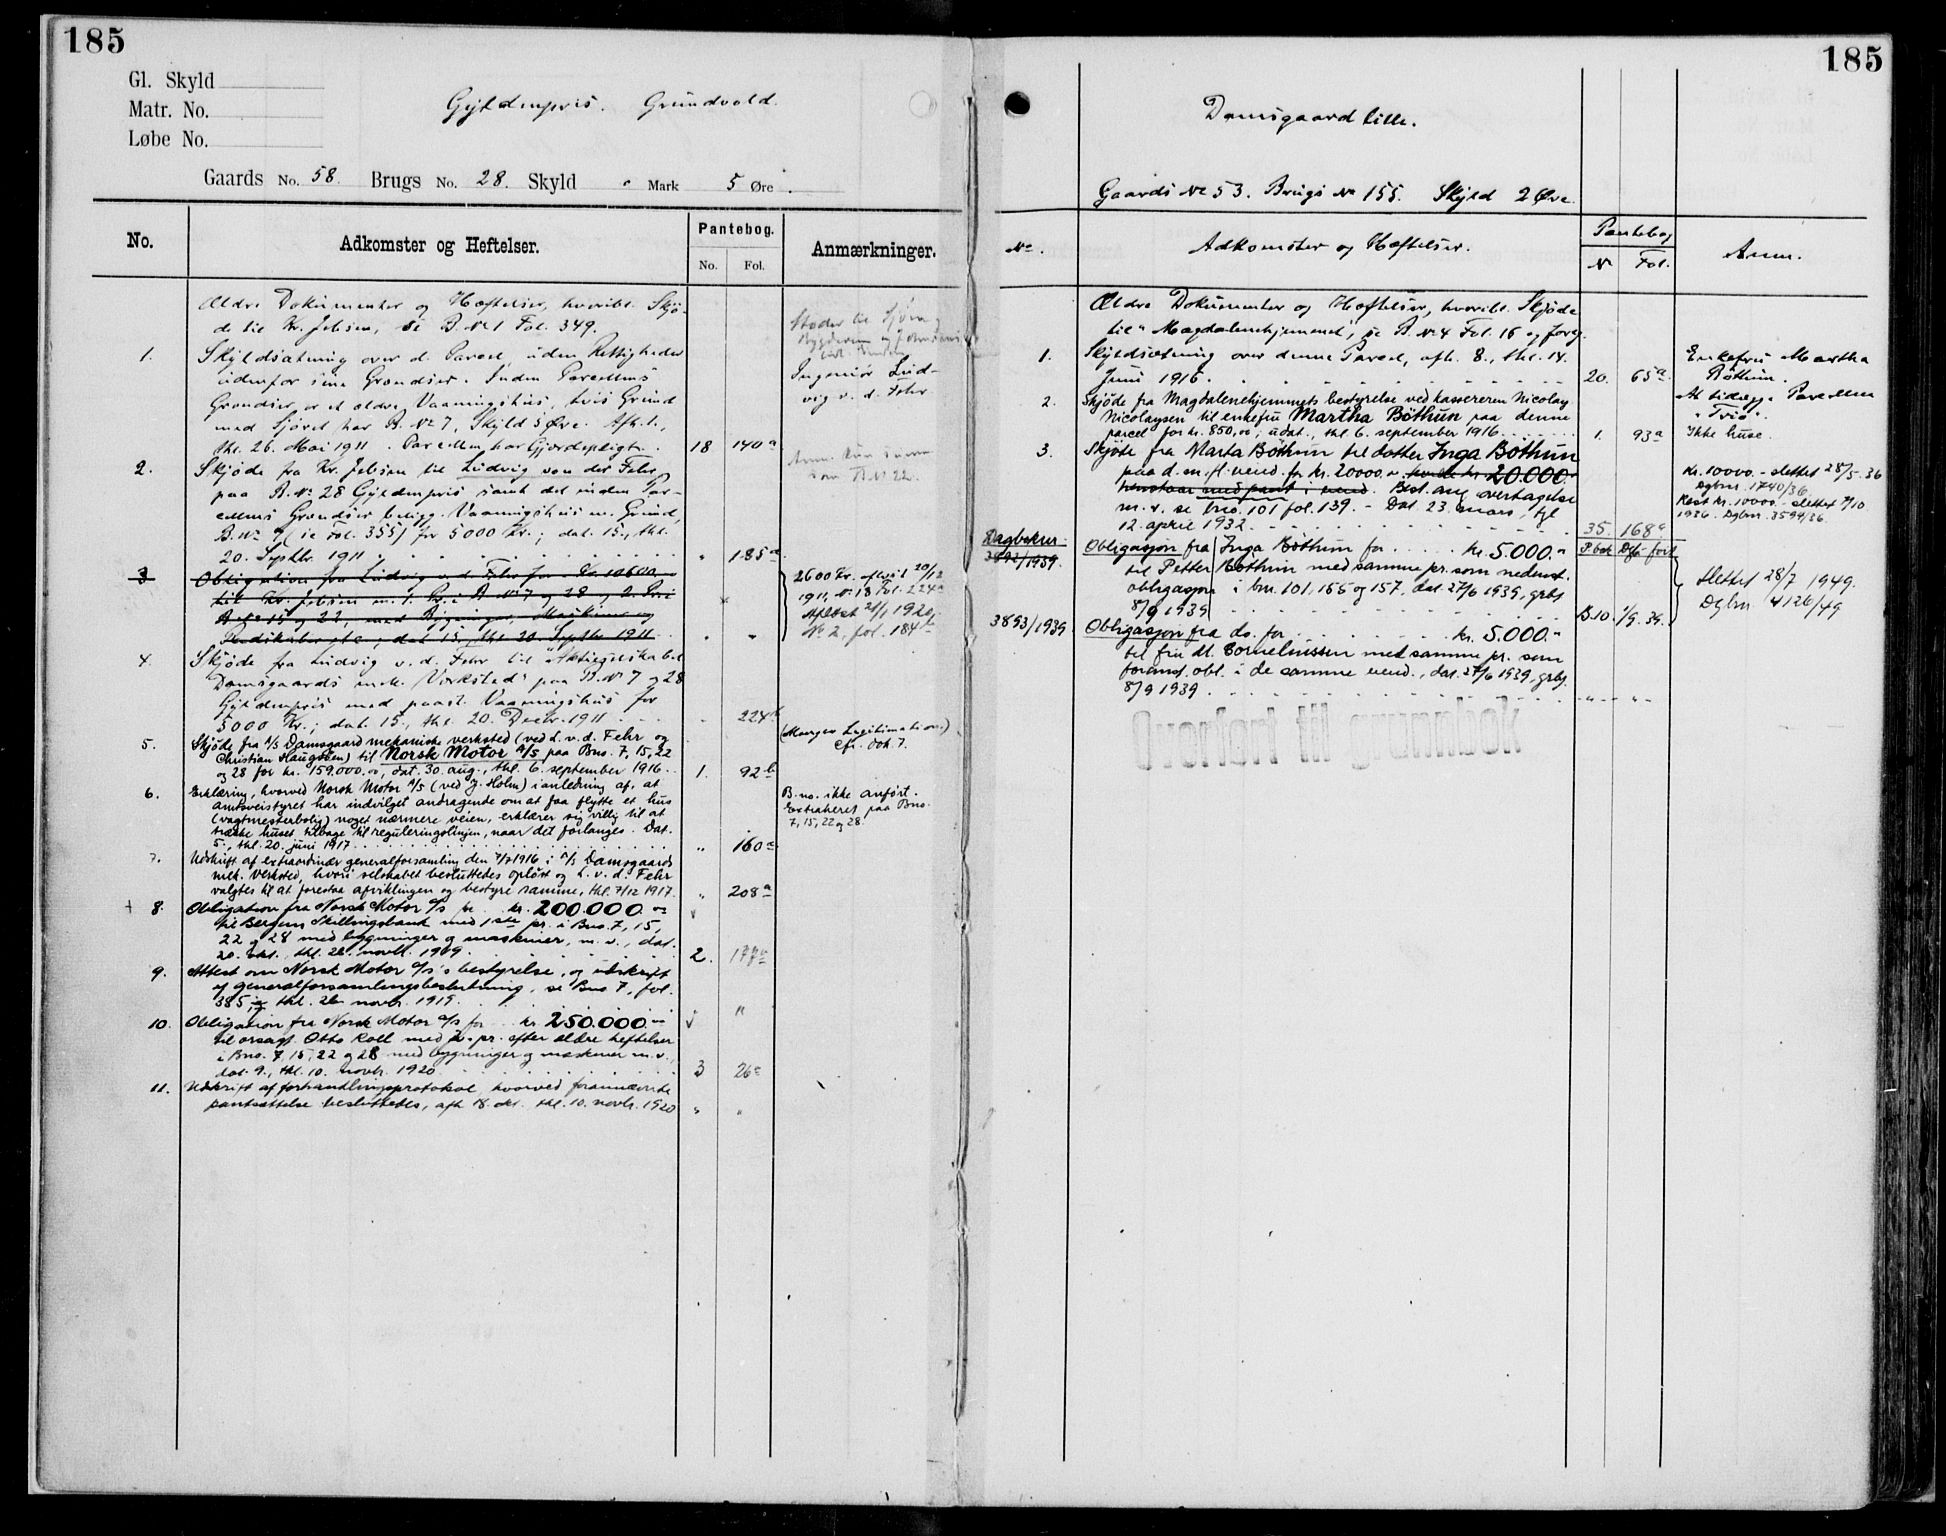 185
Gl. Skyld
Matr. No.
Løbe No.
Gyldenpris. Grundvold.
Gaards No. 58. Brugs No. 28. Skyld " Mark 5 Øre.
No.
Adkomster og Heftelser.
Pantebog.
No. Fol.
Anmærkninger.
Ældre Dokumenter og Hæftelser, hvoribl. Skjø-
de til Kr. Jebsen, se B.No 1 Fol. 349.
1. Skyldsætning over d. Parcel, uden Rettigheder
udenfor sine Grændser. Inden Parcellens
Grændser er et ældre Vaaningshus, hvis Grund
med Sjøret har B.No 7, Skyld 5 Øre. Afh. 1.,
thl. 26. Mai 1911. Parcellen har Gjerdepligt. 18 140a
Ingeniør Lud-
vig v. d. Fehr
2. Skjøde fra Kr. Jebsen til Ludvig von der Fehr
paa B.No. 28 Gyldenpris samt det inden Par-
cellens Grændser belligg. Vaaningshus m. Grund,
B.No 7 (se Fol. 355) for 5000 Kr.; dat. 15., thl.
20. Septbr. 1911 " 185a
som B.No 22.
3 Obligation fra Ludvig v. d. Fehr for Kr. 10600
til Kr. Jebsen m. 1. Pr. i B.No 7 og 28 og 2. Pri
B.No 15 og 22, med Bygninger, Maskiner og
dat. 15., thl. 20. Septbr. 1911 " "
2600 Kr. aflyst 20/12
1911, No 18 Fol. 224a
Aflæst 21/1 1920,
No 2, fol. 184b
4. Skjøde fra Ludvig v. d. Fehr til "Aktieselskabet
Damsgaards mek. Værksted" paa B.No 7 og 28
Gyldenpris med paast. Vaaningshus for
5000 Kr.; dat. 15., thl. 20. Decbr. 1911 " 224b
(Mangler Legitimation.)
cfr. dok. 7.
5. Skjøde fra A/S Damsgaard mekaniske verksted (ved L.v.d. Fehr og
Christian Haugsøen) til Norsk Motor A/S paa Bno. 7, 15, 22
og 28 for kr. 159.000,00, dat. 30. aug., thl. 6. september 1916. 1. 92b
6. Erklæring, hvorved Norsk Motor A/S (ved J. Holm) i anledning af, at
amtsveistyret har indvilget andragende om at faa flytte et hus
(vagtmesterbolig) noget nærmere veien, erklærer sig villig til at
trække huset tilbage til reguleringslinjen, naar det forlanges. Dat.
5., thl. 20. juni 1917 " 160a
B.no. ikke anført.
Extraheret paa Bno.
7, 15, 22 og 28.
7. Udskrift af extraordinær generalforsamling den 7/7 1916 i A/S Damsgaards
mek. Verksted, hvori selskabet besluttedes opløst og L. v. d. Fehr
valgtes til at forestaa afviklingen og bestyre samme, thl. 7/12 1917. " 208a
8. Obligation fra Norsk Motor A/S for kr. 200.000.00
til Bergens Skillingsbank med 1ste pr. i Bno. 7, 15,
22 og 28 med bygninger og maskiner, m. v., dat.
20. okt., thl. 26. novbr. 1919. 2. 177a
9. Attest om Norsk Motor A/S's bestyrelse, og udskrift
af generalforsamlingsbeslutning, se Bno 7, fol.
385, thl. 26 novbr. 1919. "
10. Obligation fra Norsk Motor A/S for kr. 250.000.00
til orsagf. Otto Roll med pr. efter ældre heftelser
i Bno. 7, 15, 22 og 28 med bygninger og maskiner m. v.,
dat. 9., thl. 10. novbr. 1920. 3 26a
11. Udskrift af forhandlingsprotokol, hvorved forannævnte
pantsættelse besluttedes, afh. 18. okt. thl. 10. novbr. 1920 " "
185
Damsgaard lille.
Gaards No 53. Brugs No 155. Skyld 2 Øre.
No.
Adkomster og Hæftelser.
Pantebog
No Fol.
Anm.
Ældre Dokumenter og Hæftelser, hvoribl. Skjøde
til "Magdalenehjemmet", se B.No 4 Fol. 16 og forøg.
1. Skyldsætning over denne Parcel, afh. 8., thl. 14.
Juni 1916. 20. 65a
Enkefru Martha
Bøthun.
2. Skjøde fra Magdalenehjemmets bestyrelse ved kassereren Nicolay
Nicolaysen til enkefru Martha Bøthun paa denne
parcel for kr. 850,00, udat., thl. 6. september 1916. 1. 93a
At tillægges Parcellen
"Trio".
Ikke huse.
3. Skjøte fra Marta Bøthun til datter Inga Bøthun
paa d. m. fl. eiend. for kr. 20000.- hvorav kr 20.000.-
henstaar med pant i eiend. Best. ang. overtagelse
m. v. se bno. 101 fol. 139. - Dat. 23. mars, tgl.
12. april 1932 35. 168a
Kr. 10000.- slettet 28/5-36
Dgbnr. 1740/36.
Rest kr. 10000.- slettet 7/10
1936. Dgbnr. 3594/36.
Dagboknr.
3892/1939.
P.bok Dgb. ført
Obligasjon fra Inga Bøthun for kr. 5.000.-
til Petter Bøthun med samme pr. som nedenst.
obligasjon i bnr. 101, 155 og 157, dat. 27/6 1939, grbf.
8/9 1939 B.10. 1/9. 39.
Slettet 28/7 1949.
Dgbnr. 4126/49
3893/1939 Obligasjon fra do. for kr. 5.000.-
til fru M. Corneliussen med samme pr. som
forannf. obl. i de samme eiend., dat. 27/6 1939, grbf.
8/9 1939. " " " "
Overført til godkending